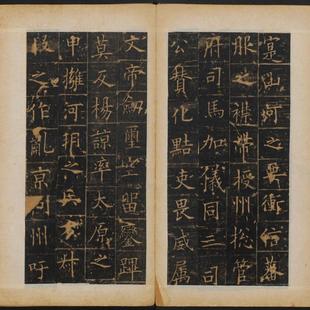 寔山河之要衝信蕃
服之襟帶授州揔管
府司馬加儀同三司
公贊化黠吏畏威属
文帝劒璽空留鑾蹕
莫反楊諒率太原之
甲擁河朔之兵叔
段之作亂京州吁